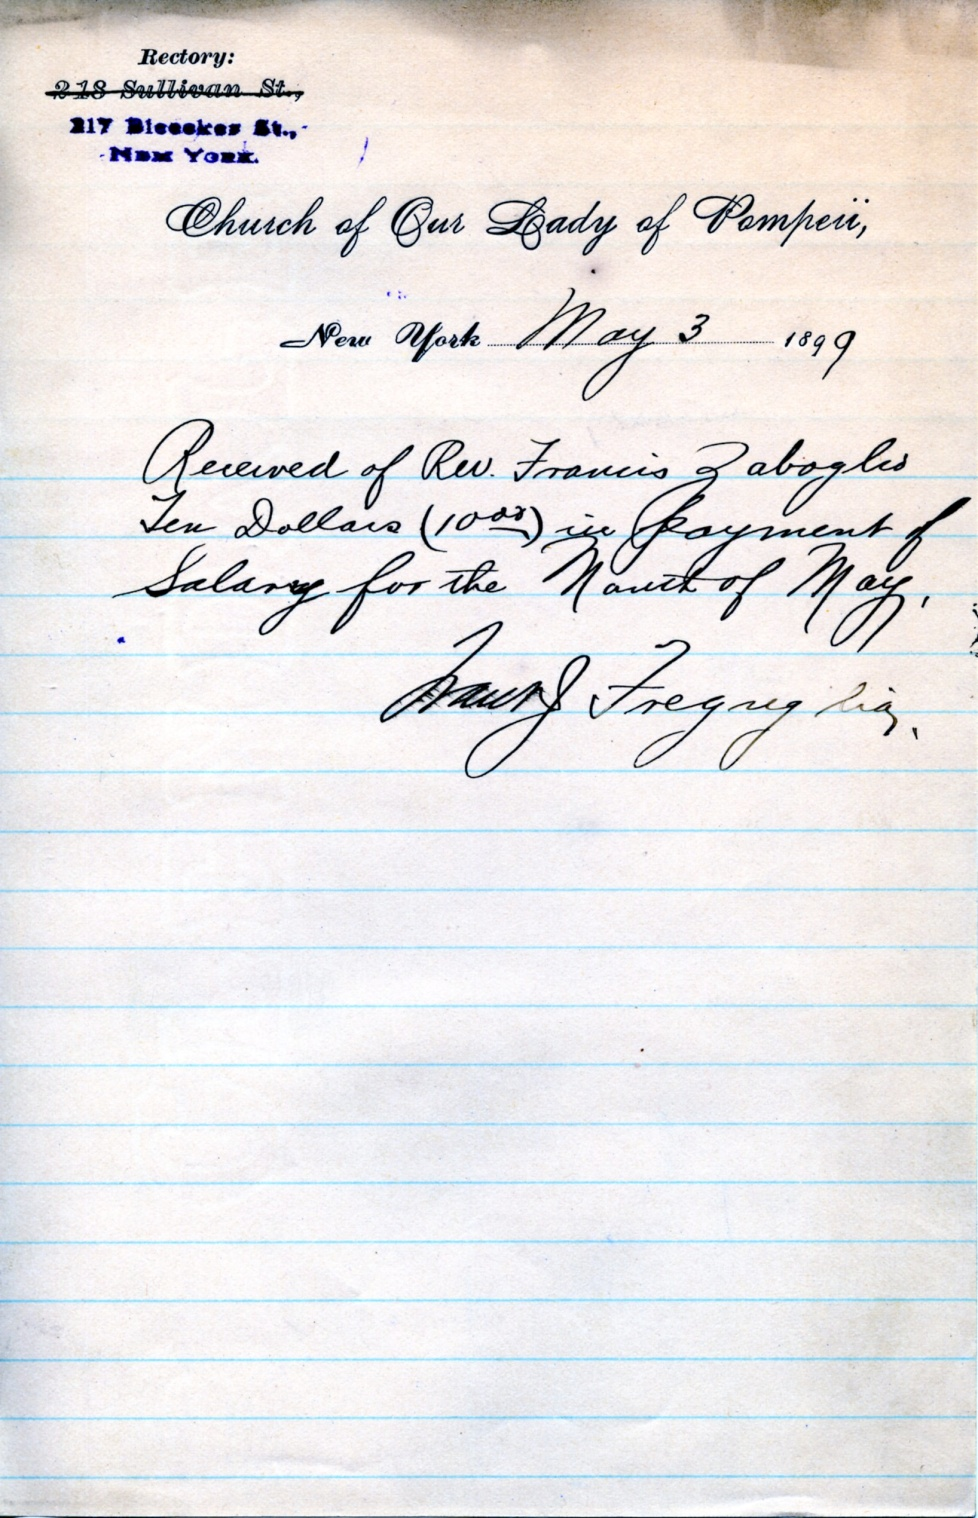 Rectory:
218 Sullivan St.,
217 Bleecker St.,
New York.
Church of Our Lady of Pompeii,
New York May 3 1899
Received of Rev. Francis Zaboglio
Ten Dollars (10 00) in payment of
Salary for the Month of May.
J Fregnglia.